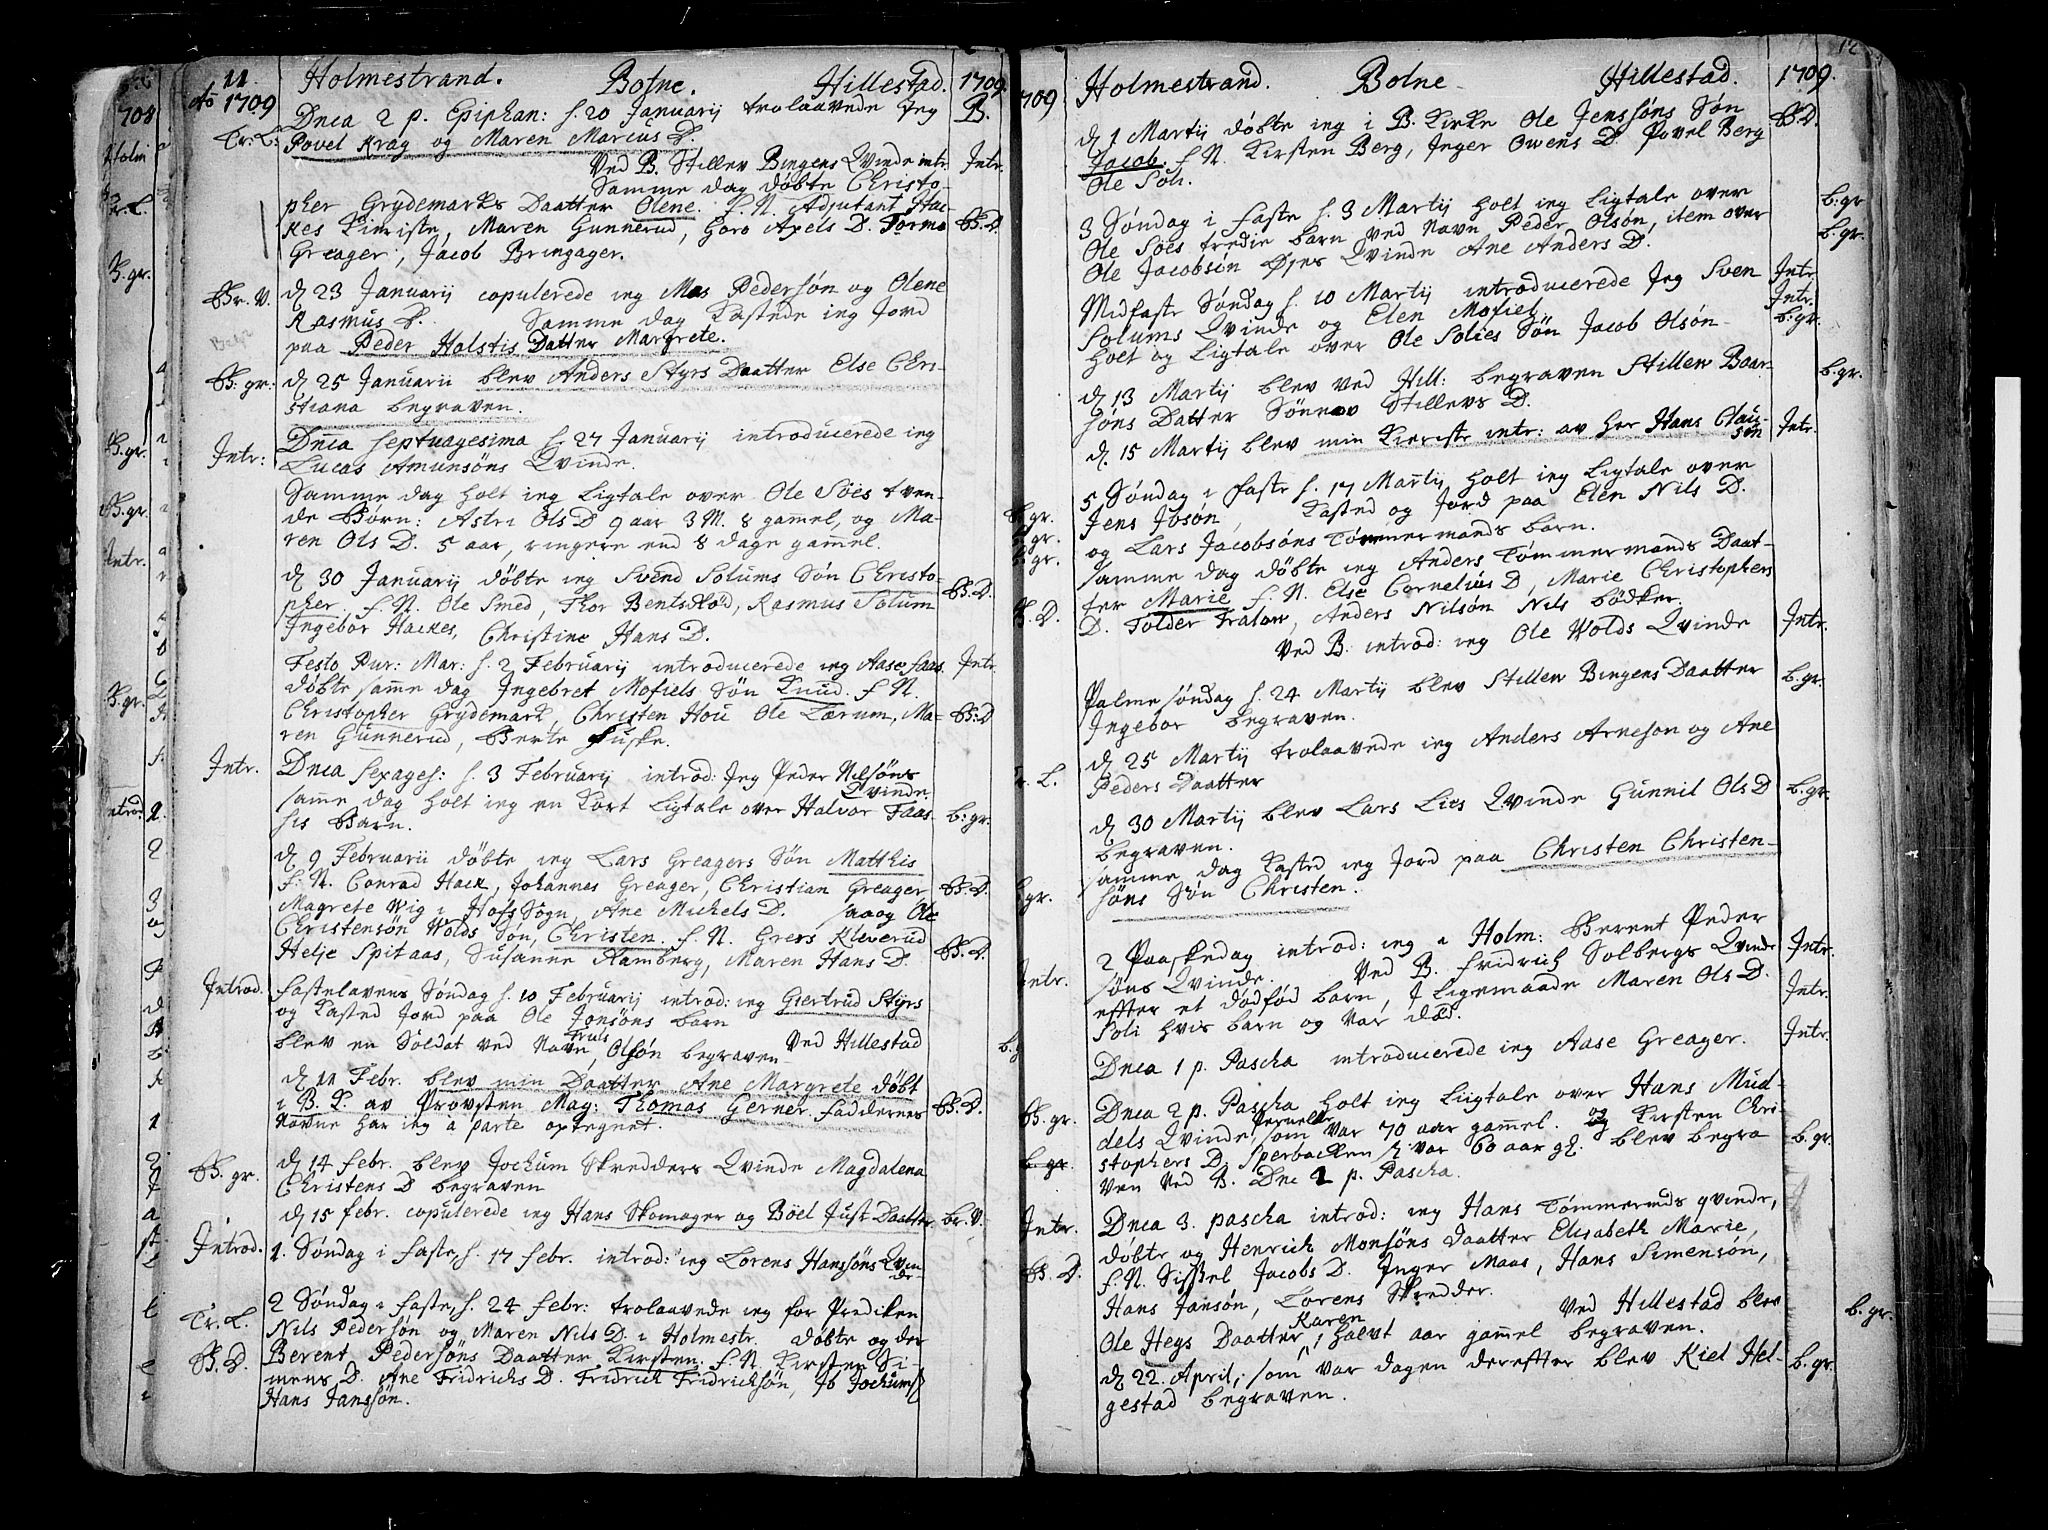 11
Ao 1709
Holmestrand. Botne. Hillestad. 1709.
Dnca 2 p. Epiphan: h. 20 Januarij trolaavede Jeg B.
Tr: L: Povel Krag og Maren Marcus D.
Ved B. Stillev Bingens Qvinde intr. Intr.
Samme dag døbte Christo-
pher Grydemarks Daatter Olene. f. N. Adjutant Hac-
kes Kieriste, Maren Gunnerud, Goro Axels D. Tormo B. D.
Greager, Jacob Bringager.
Br. V. d. 23 Januarij copulerede ieg Mas Pedersøn og Olene
Rasmus D. Samme dag Kastede ieg Jord
paa Peder Holstis Datter Margrete.
B: gr: d. 25 Januarii blev Anders Styrs Daatter Else Chri-
stiana begraven.
Intr: Dnca Septuagesima h. 27 Januarij introducerede ieg
Lucas Amunsøns Qvinde.
Samme dag holt ieg Ligtale over Ole Søes tven-
de Børn: Astri Ols D 9 aar 3 M. 8 gammel, og Ma-
ren Ols D. 5 aar, ringere end 8 dage gammel.
d. 30 Januarij døbte ieg Svend Solums Søn Christo- B. D.
pher. f. N. Ole Smed, Thor Bentsrød, Rasmus Solum
Ingebor Hackes, Christine Hans D.
Festo Pur: Mar: h. 2 Februarij introducerede ieg Aase Saas. Intr
døbte samme dag Ingebret Mofiels Søn Knud. f. N.
Christopher Grydemark, Christen Hou Ole Lærum, Ma- B: D
ren Gunnerud, Berte Huske.
Intr. Dnca Sexages: h. 3 Februarij introd: Jeg Peder Nilsøns
Qvinde
samme dag holt ieg en Kort Ligtale over Halvor Faas- b: gr.
sis Barn.
d. 9 Februarii døbte ieg Lars Greagers Søn Matthis
f. N. Conrad Hack, Johannes Greager, Christian Greager B. D.
Magrete Wig i Hofs Sogn, Ane Michels D. saa og Ole
Christensøn Wolds Søn, Christen. f. N. Grers Kleverud
Helje Spitaas, Susanne Ramberg, Maren Hans D. B. D.
Introd. Fastelavens Søndag h. 10 Februarij introd: ieg Giertrud Styrs
og Kasted Jord paa Ole Jonsøns barn
Ved Hillestad
blev en Soldat ved Navn Truls Olsøn begraven
d. 11 Febr. blev min Daatter Ane Margrete døbt
i B. K. av Provsten Mag: Thomas Gerner. Faddernes B. D.
Navne har ieg a parte optegnet.
B. gr. d. 14 Febr. blev Jochum Skredders Qvinde Magdalena
Christens D begraven
d. 15 febr. copulerede ieg Hans Skomager og Boel Just Daatter. br. V.
Introd. 1. Søndag i faste, h. 17 febr. introd: ieg Lorens Hanssøns Qvin
de.
Tr. L. 2 Søndag i faste, h. 24 febr: trolaavede ieg for Prediken
Nils Pedersøn og Maren Nils D. i Holmestr. døbte og der
B. D. Berent Pedersøns Daatter Kirsten. f. N. Kirsten Si-
mens D. Ane Fridrichs D. Fridrich Fridricksøn, Ib Jochums
Hans Janssøn.
12
1709 Holmestrand. Botne. Hillestad. 1709.
d. 1 Martij døbte ieg i B. Kirke Ole Jenssøns Søn B. D.
Jacob. f. N. Kirsten Berg, Inger Owens D. Povel Berg
Ole Soli.
3 Søndag i faste h. 3 Martij holt ieg Ligtale over b. gr
Ole Søes tredie barn ved Navn Peder Olsøn, item over
Ole Jacobsøn Øjes Qvinde Ane Anders D. b. gr.
Midfaste Søndag h. 10 Martij introducerede Jeg Sven Intr
Solums Qvinde og Elen Mofiel. Intr.
holt og Ligtale over Ole Solies Søn Jacob Olsøn b: gr.
d. 13 Martij blev ved Hill: begraven Stillew Baar- b. gr.
søns Datter Sønnov Stillevs D.
d. 15 Martij blev min Kieriste intr: av Her Hans Clau- Intr.
sen
5 Søndag i faste h. 17 Martij holt ieg Ligtale over
B. gr. Jens Ibsøn Kasted og Jord paa Elen Nils D.
B. gr. og Lars Jacobsøns Tømmermands barn.
B. gr. samme dag døbte ieg Anders Tømmermands Daat-
ter Marie f. N. Else Cornelius D, Marie Christophers
B. D. D. Tolder Tralow, Anders Nilsøn Nils bødker.
Ved B. introd: ieg Ole Wolds Qvinde Intr.
Palme søndag h. 24 Martij blev Stillew Bingens Daatter b. gr.
Ingebor begraven.
d. 25 Martij trolaavede ieg Anders Arneson og Ane
Tr. L. Peders Daatter
d. 30 Martij blev Lars Lies Qvinde Gunnil Ols D b. gr.
begraven.
samme dag Kasted ieg Jord paa Christen Christen-
b. gr. søns Søn Christen.
2 Paaskedag introd: ieg i Holm: Berent Peder
Intr. søns Qvinde. Ved B. Fridrich Solbergs Qvinde Intr.
effter et dødfød barn, J Ligemaade Maren Ols D. Intr.
Soli hvis barn og var død.
Dnca 1 p. Pascha introducerede ieg Aase Greager. Intr.
B. gr. Dnca 2 p. Pascha holt ieg Liigtale over Hans Mud-
dels Qvinde Pernelle, som var 70 aar gammel. og Kirsten Chri-
b. gr. stophers D. Sperbacken h. var 60 aar gl. blev begra b. gr.
Ven ved B. Dnc 2 p. Pascha.
Intr. Dnca 3. pascha introd: ieg Hans Tømmeruds qvinde,
døbte og Henrich Monsøns Daatter Elisabeth Marie,
B. D. f. N. Sissel Jacobs D. Inger Maas, Hans Simensøn,
Hans Jansøn, Lorens Skredder.
Ved Hillestad blev b. gr.
Ole Heys Daatter Karen, i halvt aar gammel begraven.
d. 22. April, som var dagen dereffter blev Kiel Hel- b. gr.
gestad begraven.